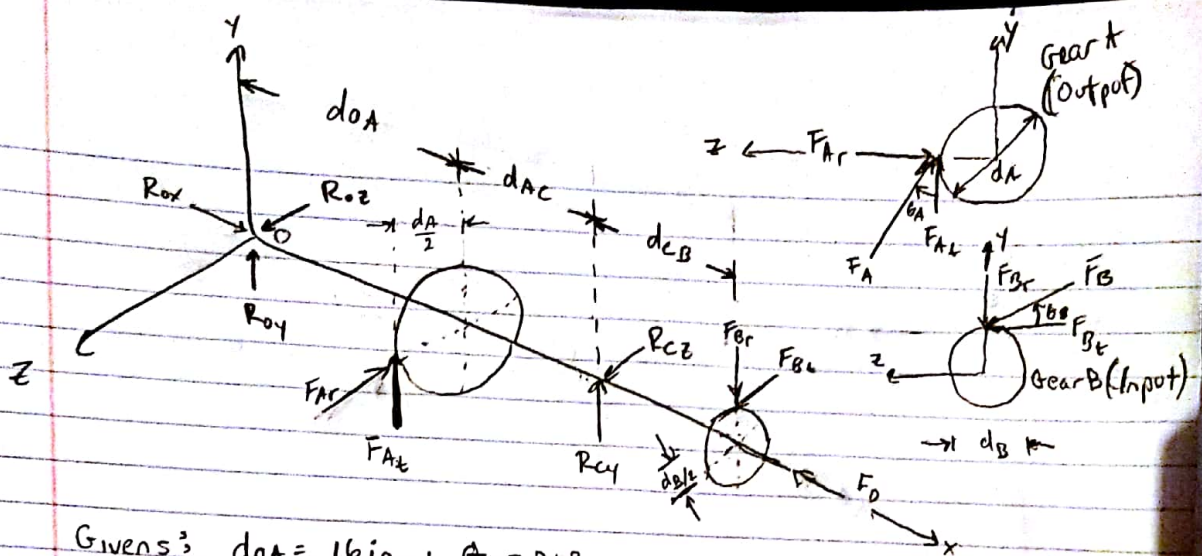 Y
doA
dAc
dcB
Rox
Roz
O
dA/2
Roy
Z
FAr
FAt
Rcz
Rcy
FBr
FBt
dB/2
Fo
x
Y
Gear A
(Output)
Z
FAr
dA
θA
FAt
FA
Y
FBr
FB
θB
FBt
z
Gear B (Input)
dB
Givens: doA = 16in,